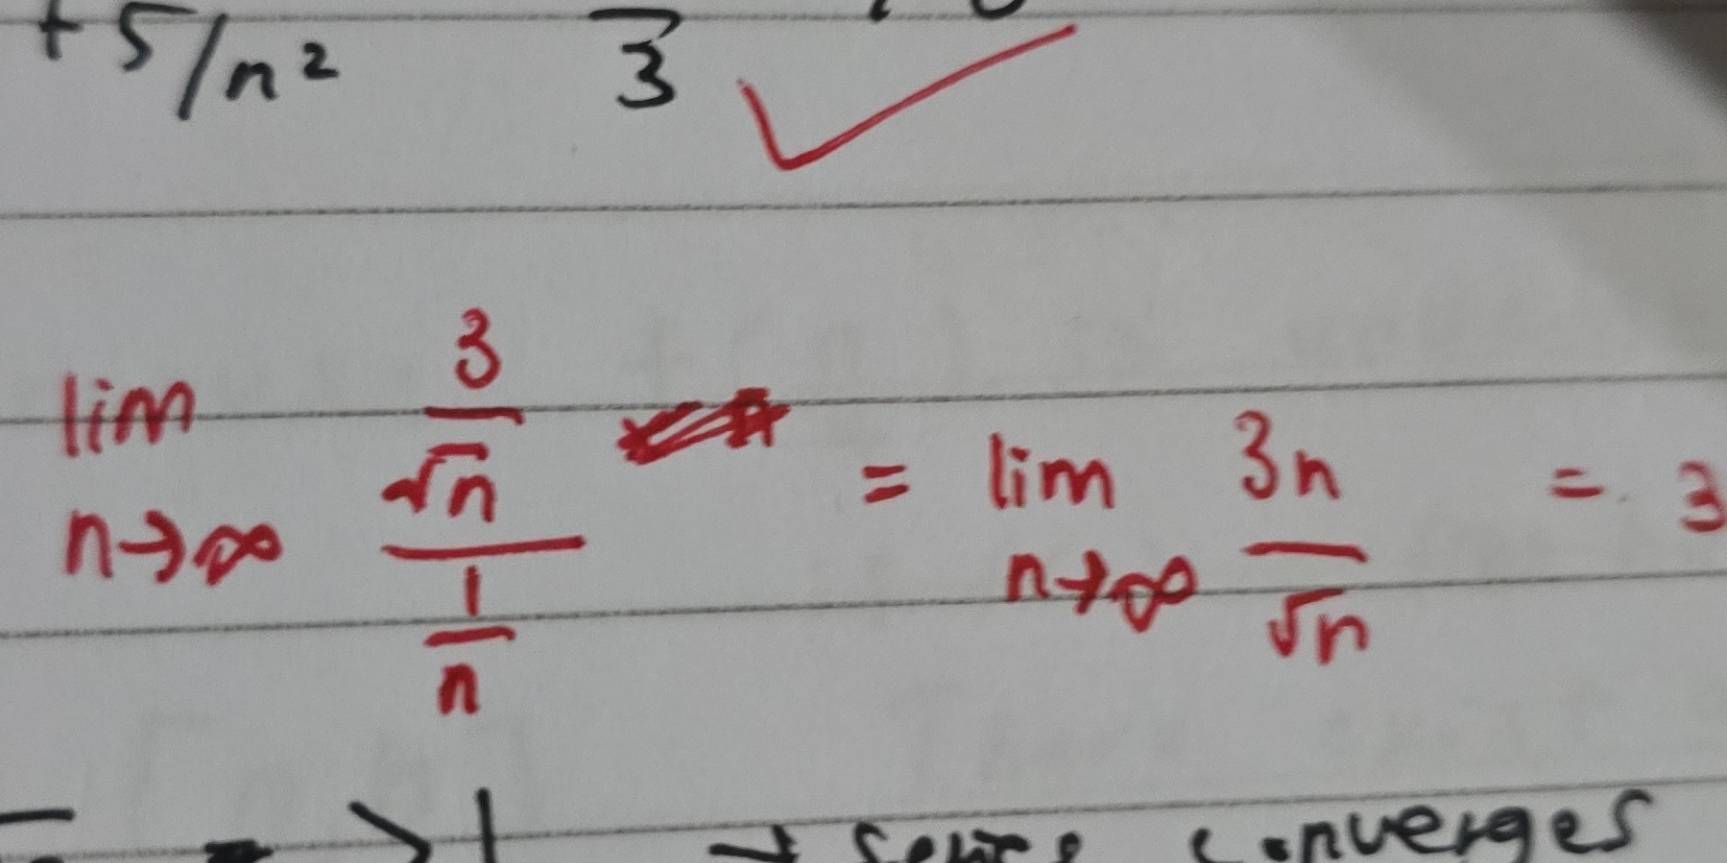 +5/n² 3
lim n→∞ 3/√n / 1/n = lim n→∞ 3n/√n = 3
>1 → series converges